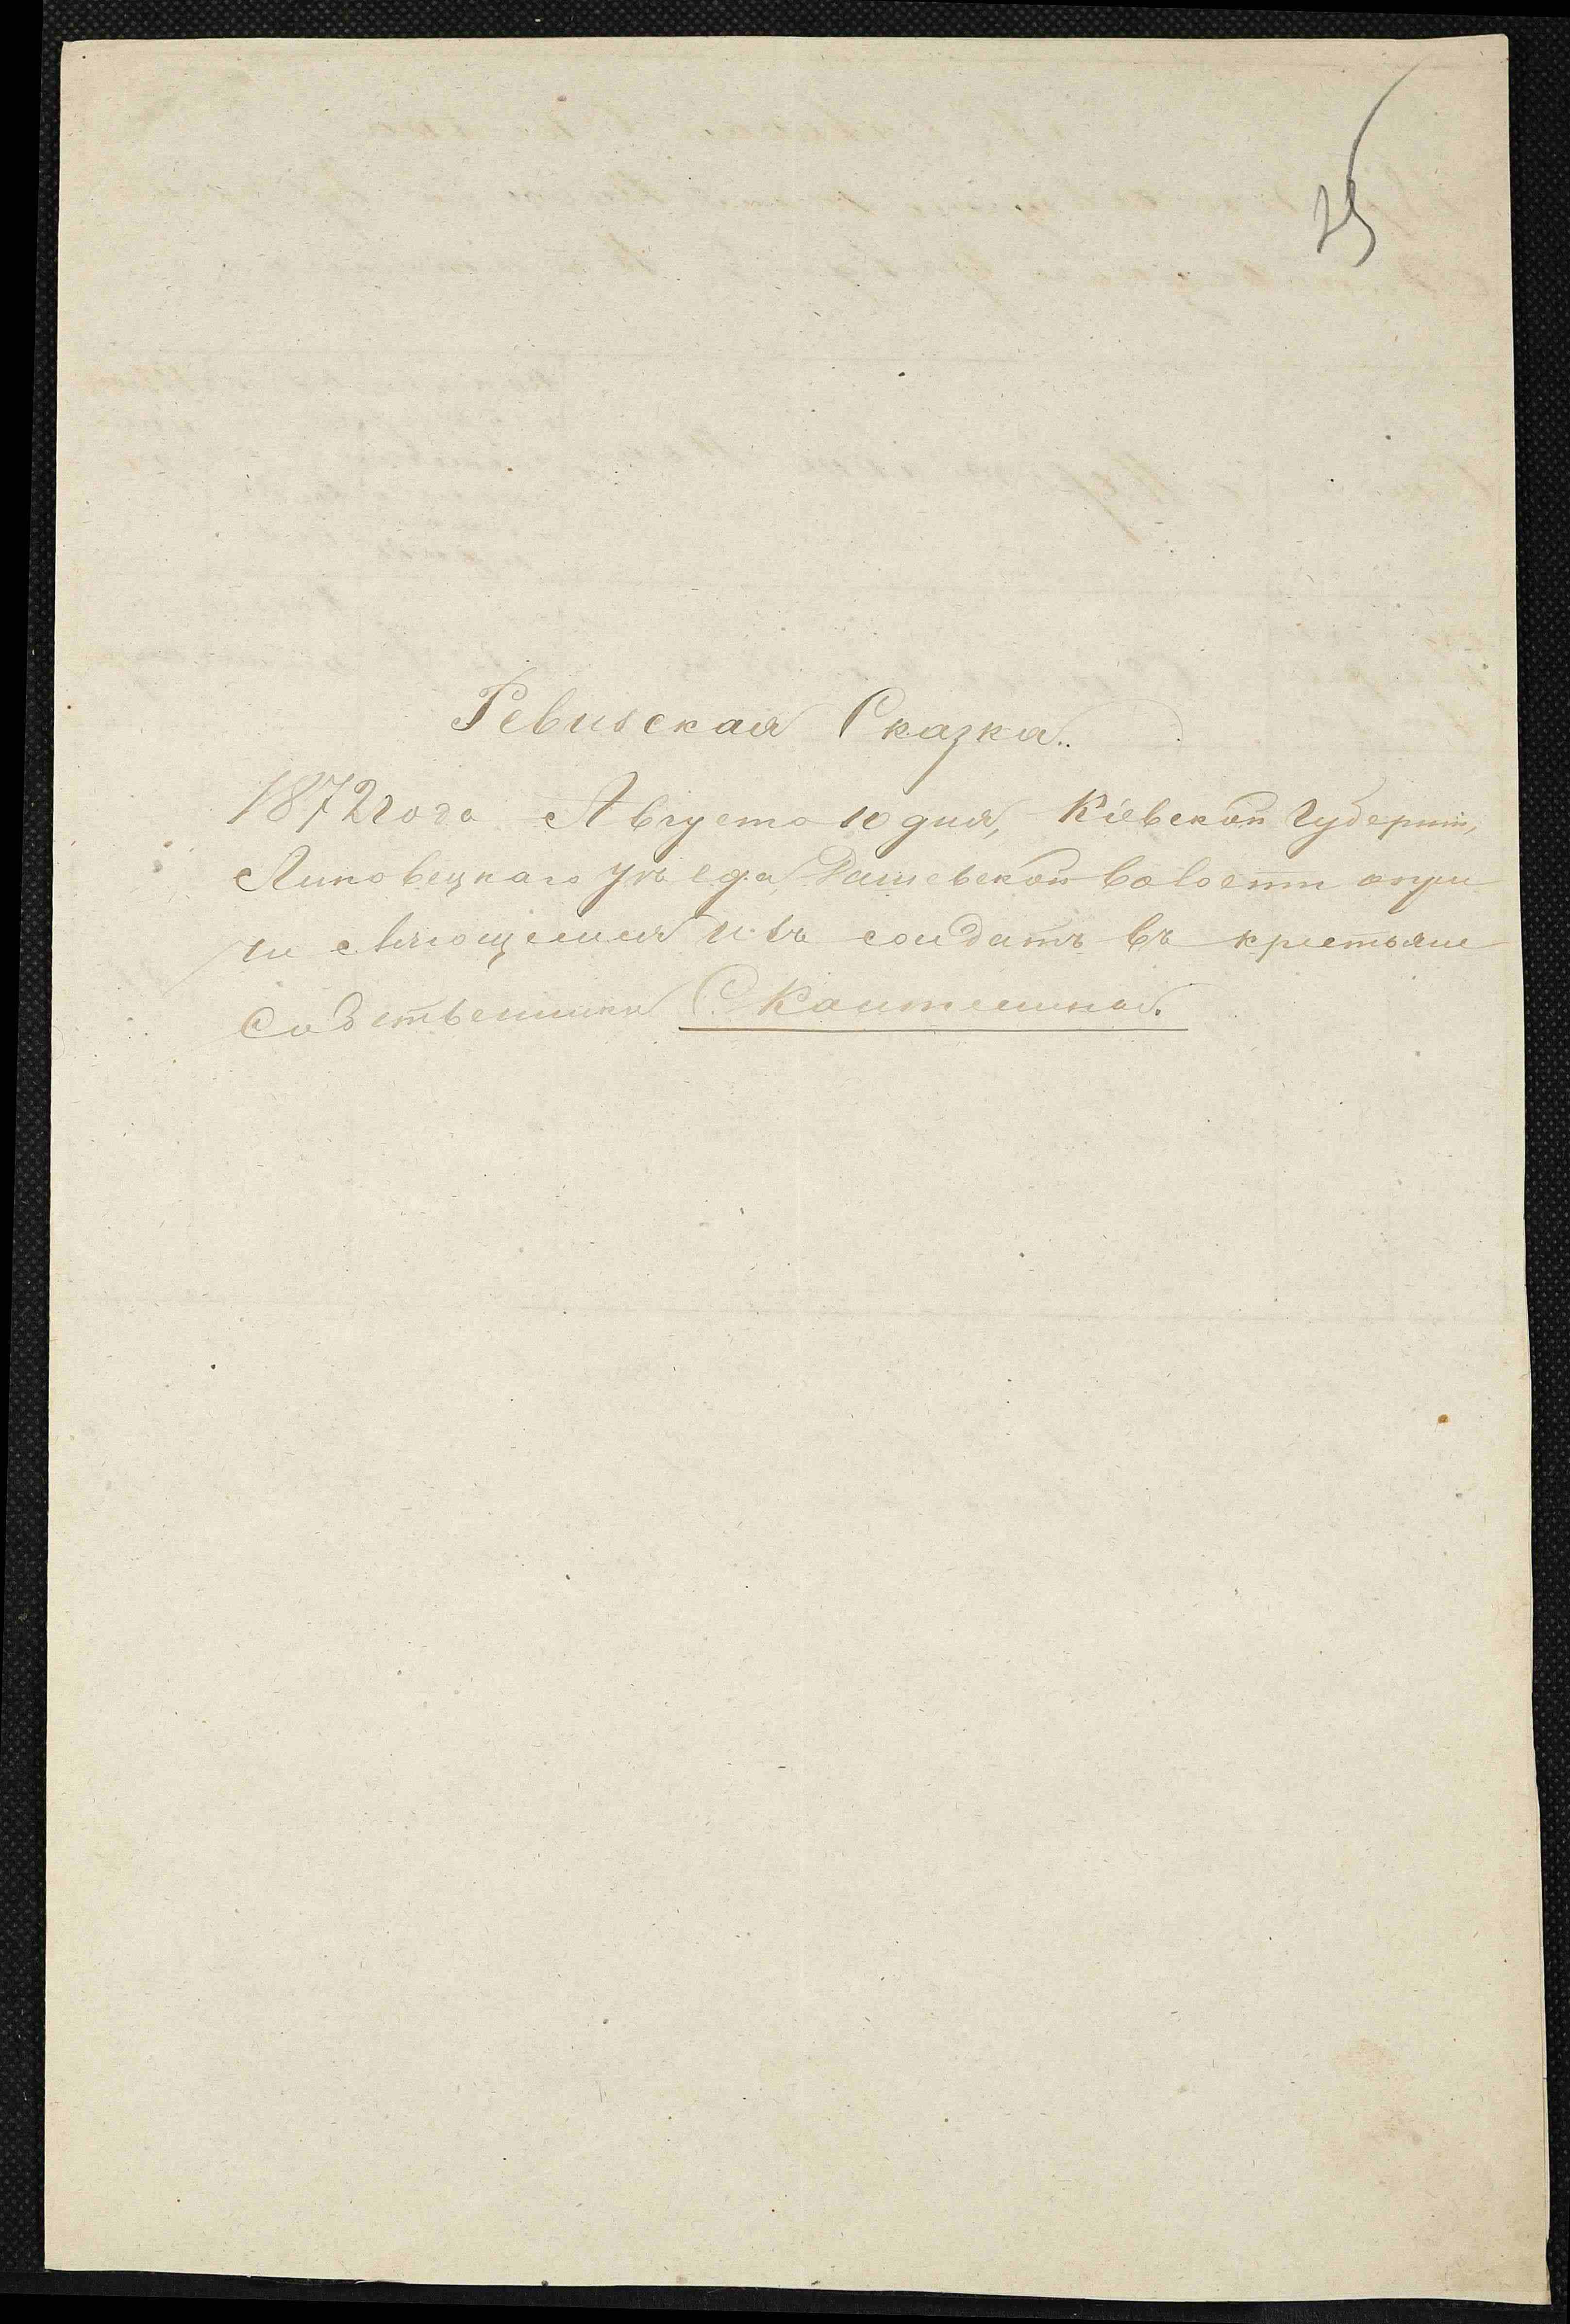 25
Ревизская Сказка.
1872 года Августа 10 дня, Кіевской Губерніи,
Липовецкаго уѣзда Дашевской Волости о при
числяющемся изъ солдатъ въ крестьяне
Собственники С. Кантелина.